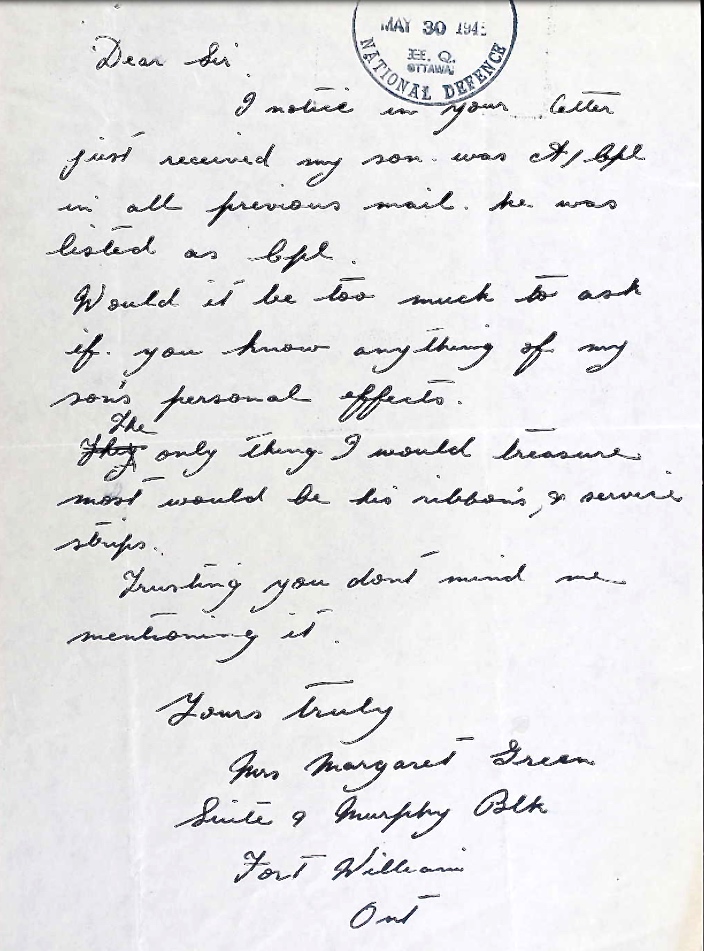 MAY 30 194
H. Q.
OTTAWA
NATIONAL DEFENCE
Dear Sir
I notice in your letter
just received my son. was A/Cpl
in all previous mail. he was
listed as Cpl.
Would it be too much to ask
if. you know anything of my
son's personal effects.
The
They only thing I would treasure
most would be his ribbons, & service
strips.
Trusting you dont mind me
mentioning it.
Yours truly
Mrs Margaret Green
Suite 9 Murphy Blk
Fort William
Ont